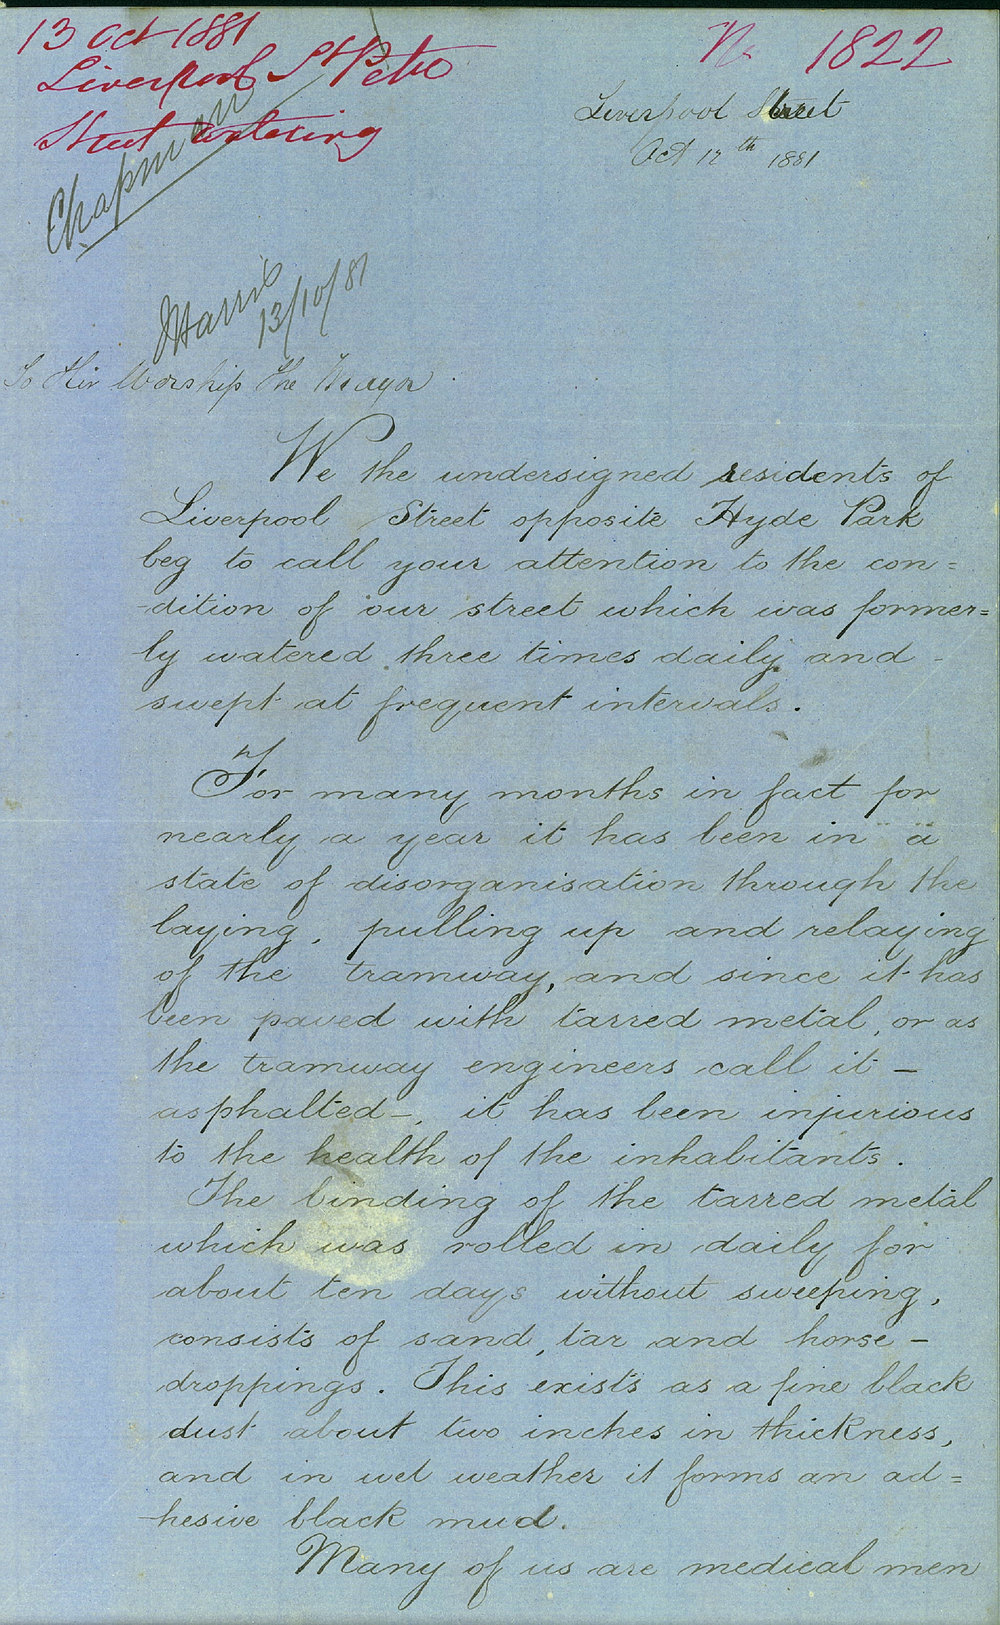 13 Oct 1881
Liverpool St Petn
Street watering
No 1822
Chapman
Liverpool Street
Oct 12th 1881
Harris
13/10/81
To His Worship The Mayor.
We the undersigned residents of
Liverpool Street opposite Hyde Park
beg to call your attention to the con=
-dition of our street which was former=
ly watered three times daily and -
swept at frequent intervals.
For many months in fact for
nearly a year it has been in a
state of disorganisation through the
laying, pulling up and relaying
of the tramway, and since it has
been paved with tarred metal, or as
the tramway engineers call it —
asphalted —, it has been injurious
to the health of the inhabitants.
The binding of the tarred metal
which was rolled in daily for
about ten days without sweeping,
consists of sand, tar and horse -
droppings. This exists as a fine black
dust about two inches in thickness,
and in wet weather it forms an ad=
-hesive black mud.
Many of us are medical men